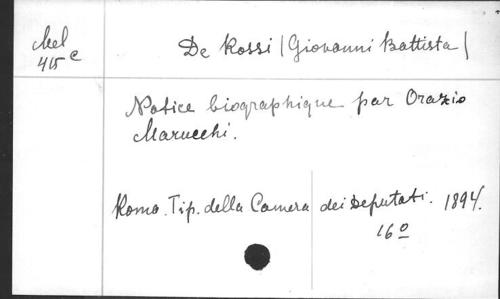 Mel
415 c
De Rossi (Giovanni Battista)
Notice biographique par Orazio
Marucchi.
Roma. Tip. della Camera dei Deputati. 1894.
16o